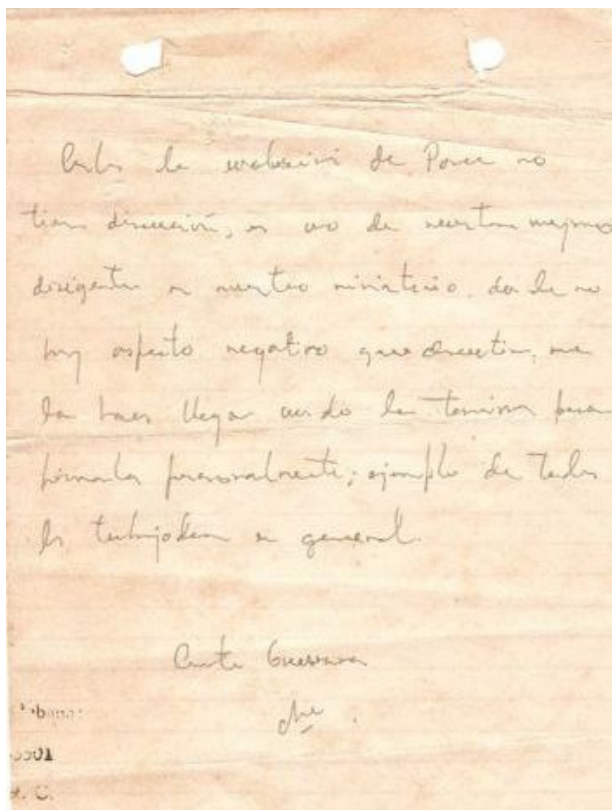 Carlos la evaluación de Ponce no
tiene discusión, es uno de nuestros mejores
dirigentes en nuestro ministerio, donde no
hay aspecto negativo que discutir, me
la haces llegar cuando la termines para
firmarla personalmente; ejemplo de todos
los trabajadores en general.
Cmte Guevara
Che